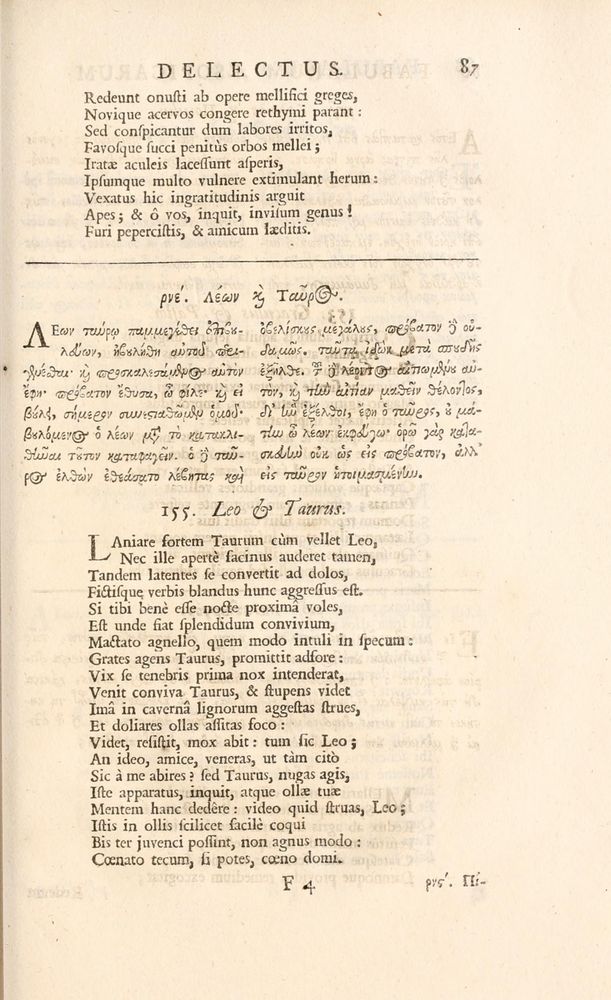 DELECTUS. 87
Redeunt onusti ab opere mellifici greges,
Novique acervos congere rethymi parant:
Sed conspicantur dum labores irritos,
Favosque succi penitùs orbos mellei;
Iratæ aculeis lacessunt asperis,
Ipsumque multo vulnere extimulant herum:
Vexatus hic ingratitudinis arguit
Apes; & ô vos, inquit, invisum genus!
Furi pepercistis, & amicum læditis.
ρνέ. Λέων ϗ Ταῦρος.
ΛΕων ταύρῳ παμμεγέθει ἐπιβου-
λεύων, ἠβουλήθη αὐτοῦ περι-
γενέσθαι· ϗ προσκαλεσάμενος αὐτὸν
ἔφη· πρόβατον ἔθυσα, ὦ φίλε· ϗ εἰ
βούλει, σήμερον συνεσιαθῶμεν ὁμοῦ·
βουλόμενος ὁ λέων μετὰ τὸ κατακλι-
θῆναι τοῦτον καταφαγεῖν. ὁ δὲ ταῦ-
ρος ἐλθὼν ἐθεάσατο λέβητας καὶ
ὀβελίσκους μεγάλους, πρόβατον δὲ οὐ-
δαμῶς. ταῦτα ἰδὼν μετὰ σπουδῆς
ἐξῆλθε. τοῦ δὲ λέοντος αἰτιωμένου αὐ-
τὸν, ϗ τὴν αἰτίαν μαθεῖν θέλοντος,
δι' ἣν ἐξέλθοι, ἔφη ὁ ταῦρος, οὐ μά-
την ὦ λέων ἐκφεύγω· ὁρῶ γὰρ κατα-
σκευὴν οὐκ ὡς εἰς πρόβατον, ἀλλ'
εἰς ταῦρον ἡτοιμασμένην.
155. Leo & Taurus.
LAniare fortem Taurum cùm vellet Leo,
Nec ille apertè facinus auderet tamen,
Tandem latentes se convertit ad dolos,
Fictisque verbis blandus hunc aggressus est.
Si tibi benè esse nocte proximâ voles,
Est unde fiat splendidum convivium,
Mactato agnello, quem modo intuli in specum:
Grates agens Taurus, promittit adfore:
Vix se tenebris prima nox intenderat,
Venit conviva Taurus, & stupens videt
Imâ in cavernâ lignorum aggestas strues,
Et doliares ollas assitas foco:
Videt, resistit, mox abit: tum sic Leo;
An ideo, amice, veneras, ut tàm citò
Sic à me abires? sed Taurus, nugas agis,
Iste apparatus, inquit, atque ollæ tuæ
Mentem hanc dedêre: video quid struas, Leo;
Istis in ollis scilicet facilè coqui
Bis ter juvenci possint, non agnus modo:
Cœnato tecum, si potes, cœno domi.
F 4 ρνς΄. Πί-